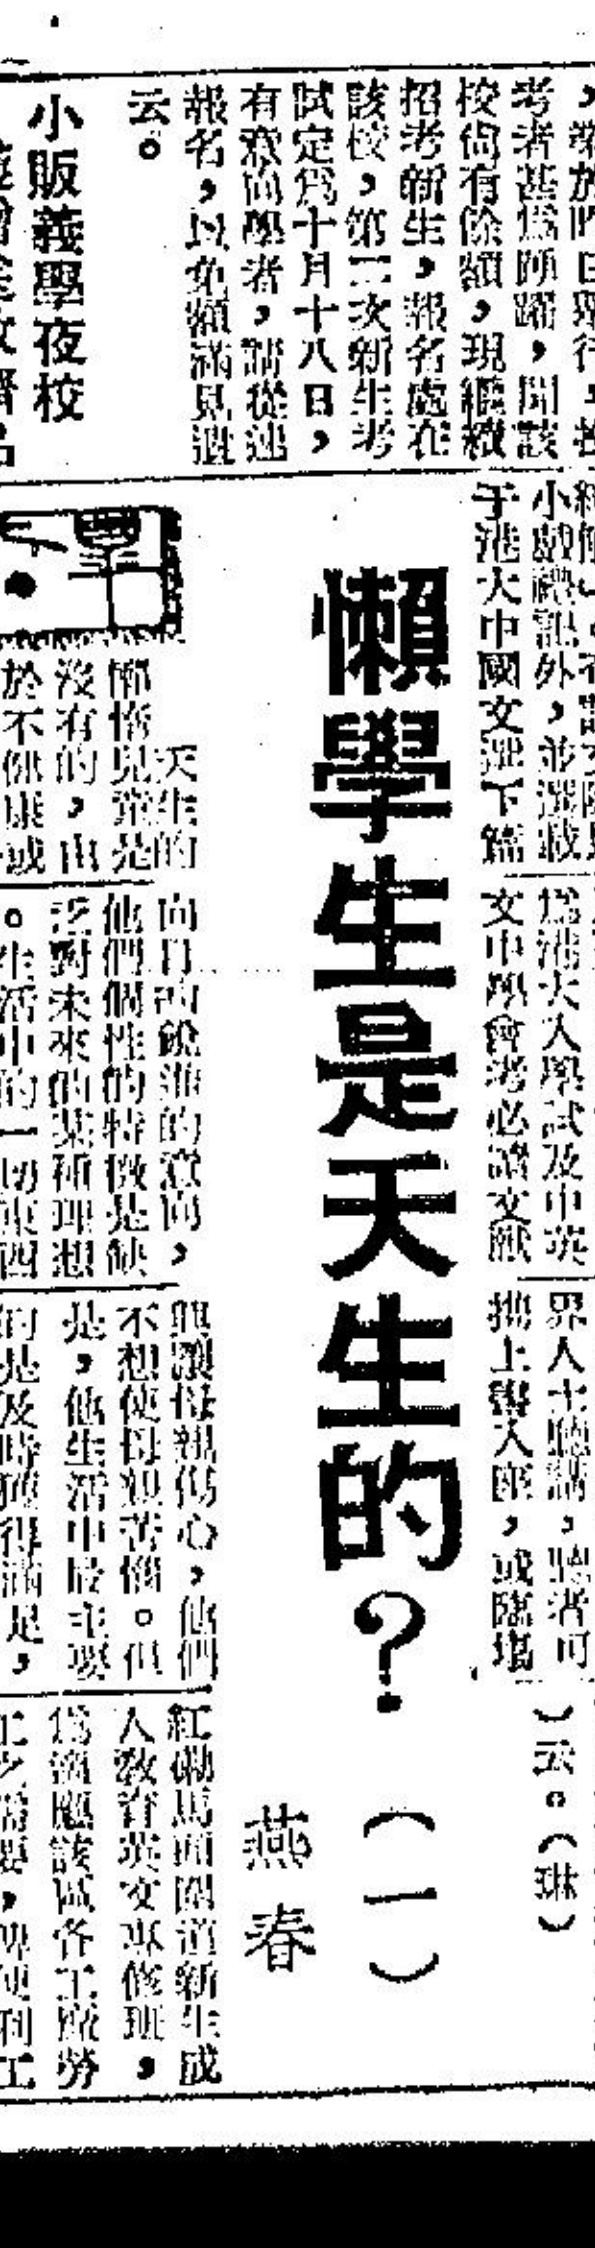 考者甚爲踴躍，聞該
校尚有餘額，現繼續
招考新生，報名處在
該校，第二次新生考
試定爲十月十八日，
有意向學者，請從速
報名，以免額滿見遺
云。
小販義學夜校
小戴禮記外，並選載
于港大中國文選下篇
爲港大入學試及中英
文中學會考必讀文獻
界人士聽講，聽者可
携上書入座，或臨塲
）云。（琳）
懶學生是天生的？（一）
燕春
天生的
懶惰兒童是
沒有的，由
於不健康或
向日前銳進的意向，
他們個性的特徵是缺
泛對未來的某種理想
。生活中的一切東西
與讓母親傷心，他們
不想使母親苦惱。但
是，他生活中最主要
的是及時獲得滿足，
紅磡馬頭圍道新生成
人敎育英文專修班，
爲適應該區各工廠勞
工之需要，俾便利工